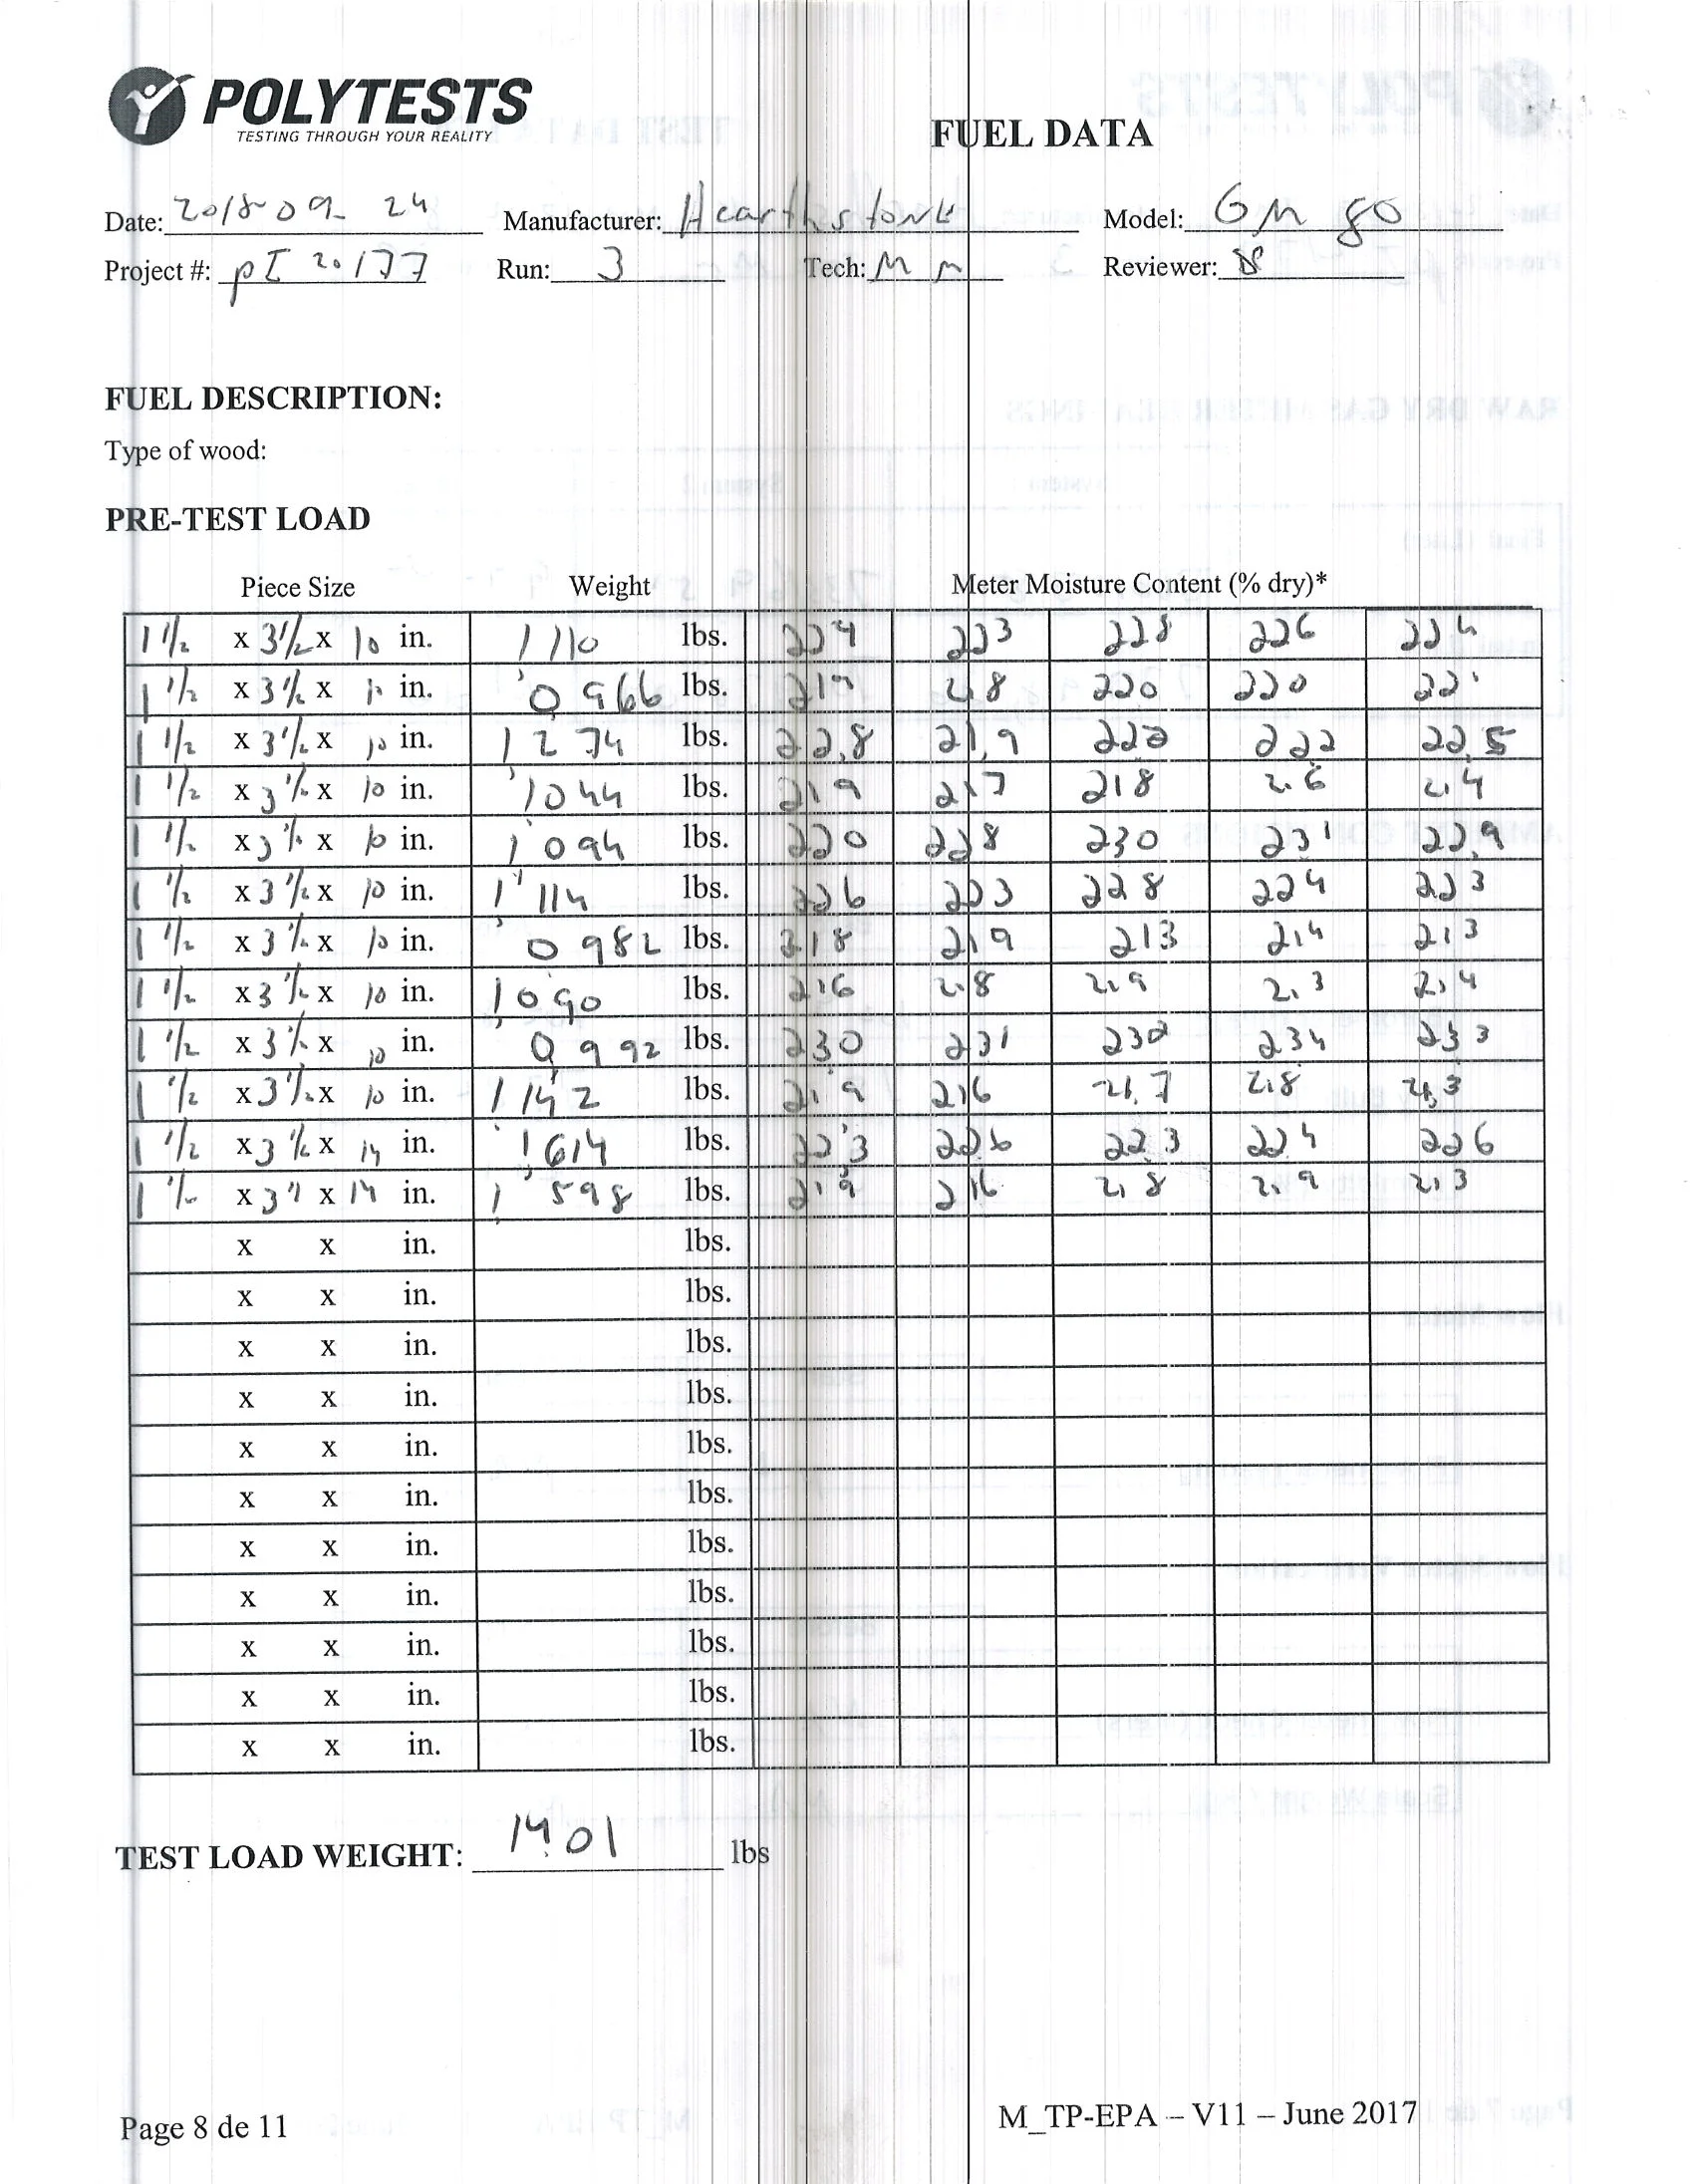 POLYTESTS
TESTING THROUGH YOUR REALITY
FUEL DATA
Date: 2018-09-24 Manufacturer: Hearthstone Model: GM 80
Project #: PI 20177 Run: 3 Tech: Reviewer:
FUEL DESCRIPTION:
Type of wood:
PRE-TEST LOAD
Piece Size Weight Meter Moisture Content (% dry)*
1 1/2 x 3 1/2 x 10 in. 1 110 lbs. 224 223 228 226 224
1 1/2 x 3 1/2 x 10 in. 0 966 lbs. 219 218 220 220 221
1 1/2 x 3 1/2 x 10 in. 1 274 lbs. 22.8 21.9 222 22.5
1 1/2 x 3 1/2 x 10 in. 1 044 lbs. 219 217 218 216 214
1 1/2 x 3 1/2 x 10 in. 1 094 lbs. 220 228 230 231 22.9
1 1/2 x 3 1/2 x 10 in. 1 114 lbs. 226 223 228 224 223
1 1/2 x 3 1/2 x 10 in. 0 982 lbs. 218 219 213 214 213
1 1/2 x 3 1/2 x 10 in. 1 090 lbs. 216 218 219 213 214
1 1/2 x 3 1/2 x 10 in. 0 992 lbs. 230 231 234 233
1 1/2 x 3 1/2 x 10 in. 1 142 lbs. 219 216 21.7 218 21.3
1 1/2 x 3 1/2 x 14 in. 1 614 lbs. 223 226 22.3 224 226
1 1/2 x 3 1/2 x 14 in. 1 598 lbs. 219 216 218 219 213
x x in. lbs.
x x in. lbs.
x x in. lbs.
x x in. lbs.
x x in. lbs.
x x in. lbs.
x x in. lbs.
x x in. lbs.
x x in. lbs.
x x in. lbs.
x x in. lbs.
TEST LOAD WEIGHT: 14.01 lbs
Page 8 de 11
M_TP-EPA – V11 – June 2017